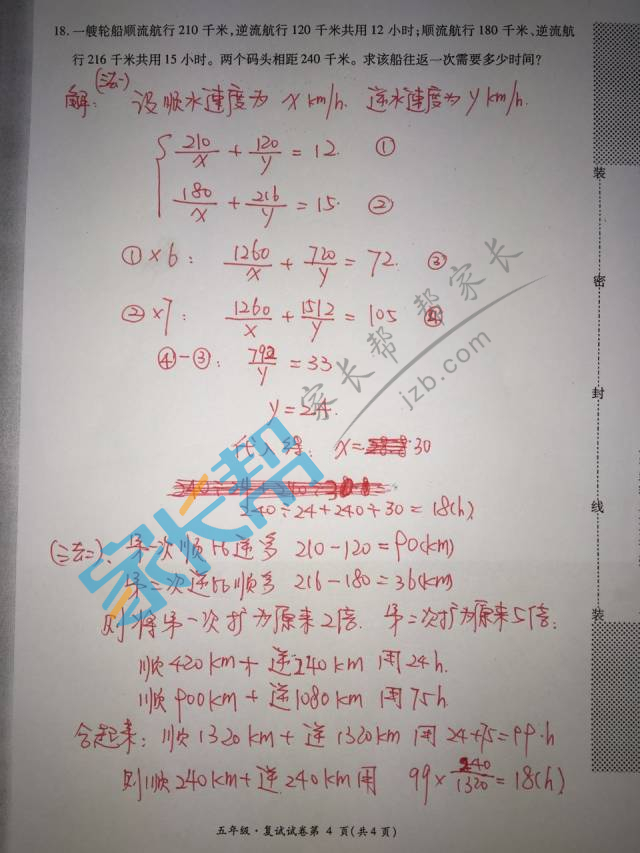 18.一艘轮船顺流航行 210 千米,逆流航行 120 千米共用 12 小时;顺流航行 180 千米、逆流航
行 216 千米共用 15 小时。两个码头相距 240 千米。求该船往返一次需要多少时间?
(法一)
解: 设顺水速度为 x km/h. 逆水速度为 y km/h.
210/x + 120/y = 12. ①
180/x + 216/y = 15. ②
①×6: 1260/x + 720/y = 72. ③
②×7: 1260/x + 1512/y = 105 ④
④-③: 792/y = 33
y = 24.
代入得: x = 30
240÷24+240÷30=18(h)
(法二)、第一次顺比逆多 210-120=90(km)
第二次逆比顺多 216-180=36(km)
则将第一次扩为原来2倍. 第二次扩为原来5倍:
顺420km+逆240km 用24h.
顺900km+逆1080km 用75h.
合起来: 顺1320km+逆1320km 用24+75=99.h
则顺240km+逆240km用 99×240/1320=18(h)
装
密
封
线
装
家长帮
家长帮 帮家长
jzb.com
五年级·复试试卷第 4 页(共4页)